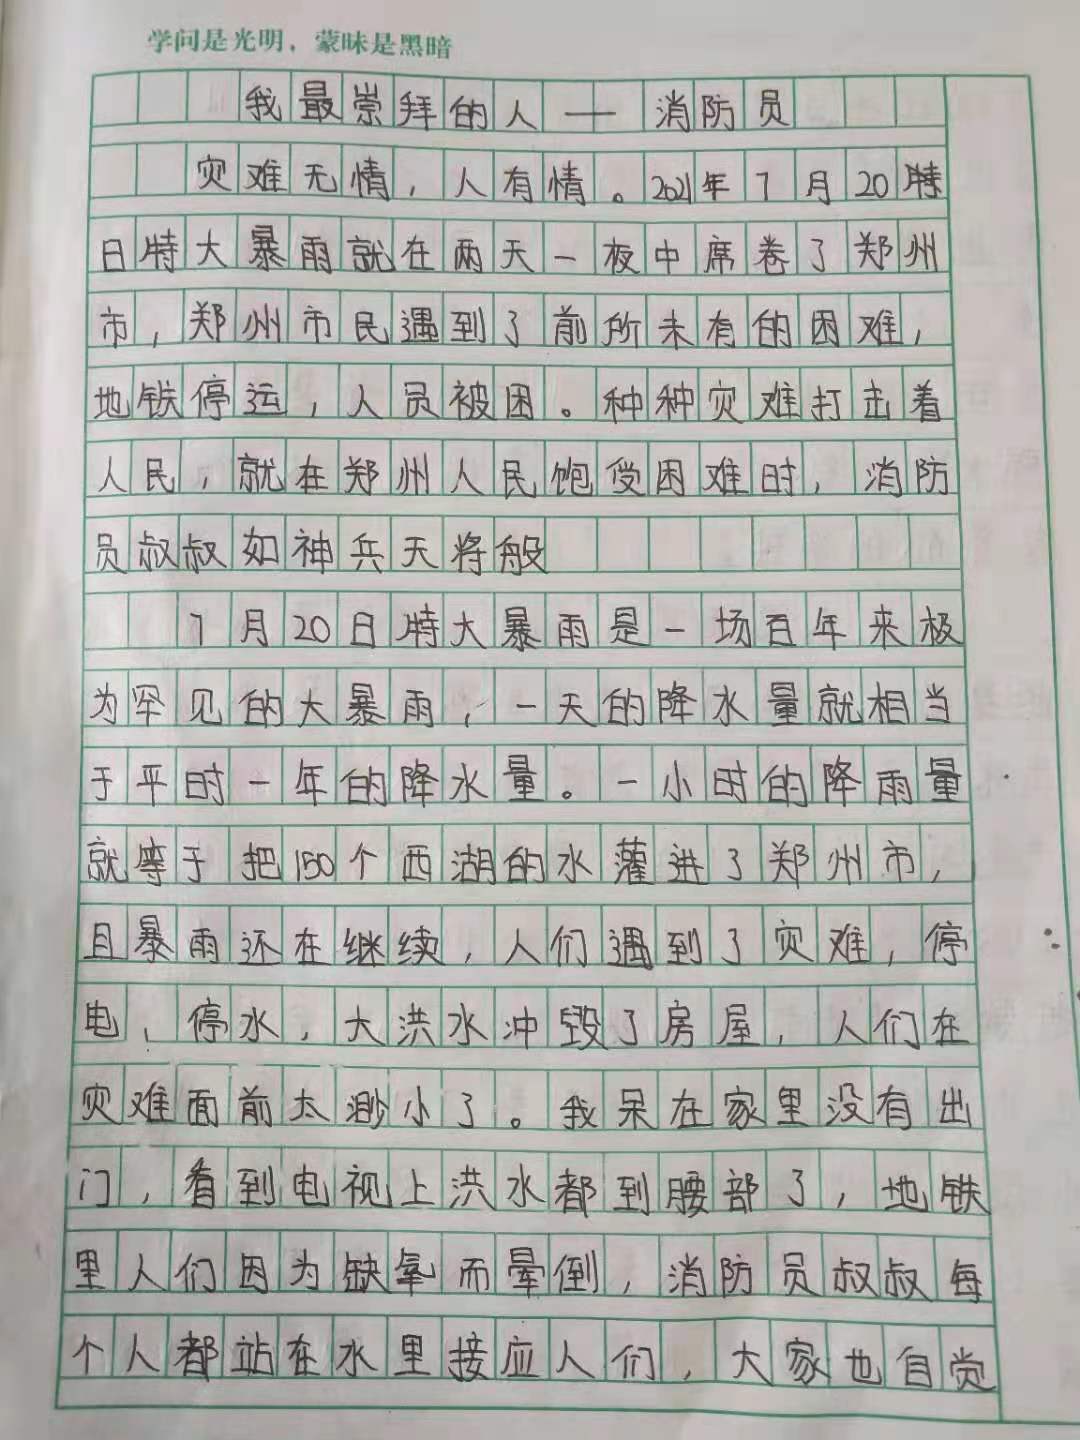 学问是光明，蒙昧是黑暗
我最崇拜的人——消防员
灾难无情，人有情。2021年7月20特
日特大暴雨就在两天一夜中席卷了郑州
市，郑州市民遇到了前所未有的困难，
地铁停运，人员被困。种种灾难打击着
人民，就在郑州人民饱受困难时，消防
员叔叔如神兵天将般
7月20日特大暴雨是一场百年来极
为罕见的大暴雨，一天的降水量就相当
于平时一年的降水量。一小时的降雨量
就等于把150个西湖的水灌进了郑州市，
且暴雨还在继续，人们遇到了灾难，停
电、停水，大洪水冲毁了房屋，人们在
灾难面前太渺小了。我呆在家里没有出
门，看到电视上洪水都到腰部了，地铁
里人们因为缺氧而晕倒，消防员叔叔每
个人都站在水里接应人们，大家也自觉